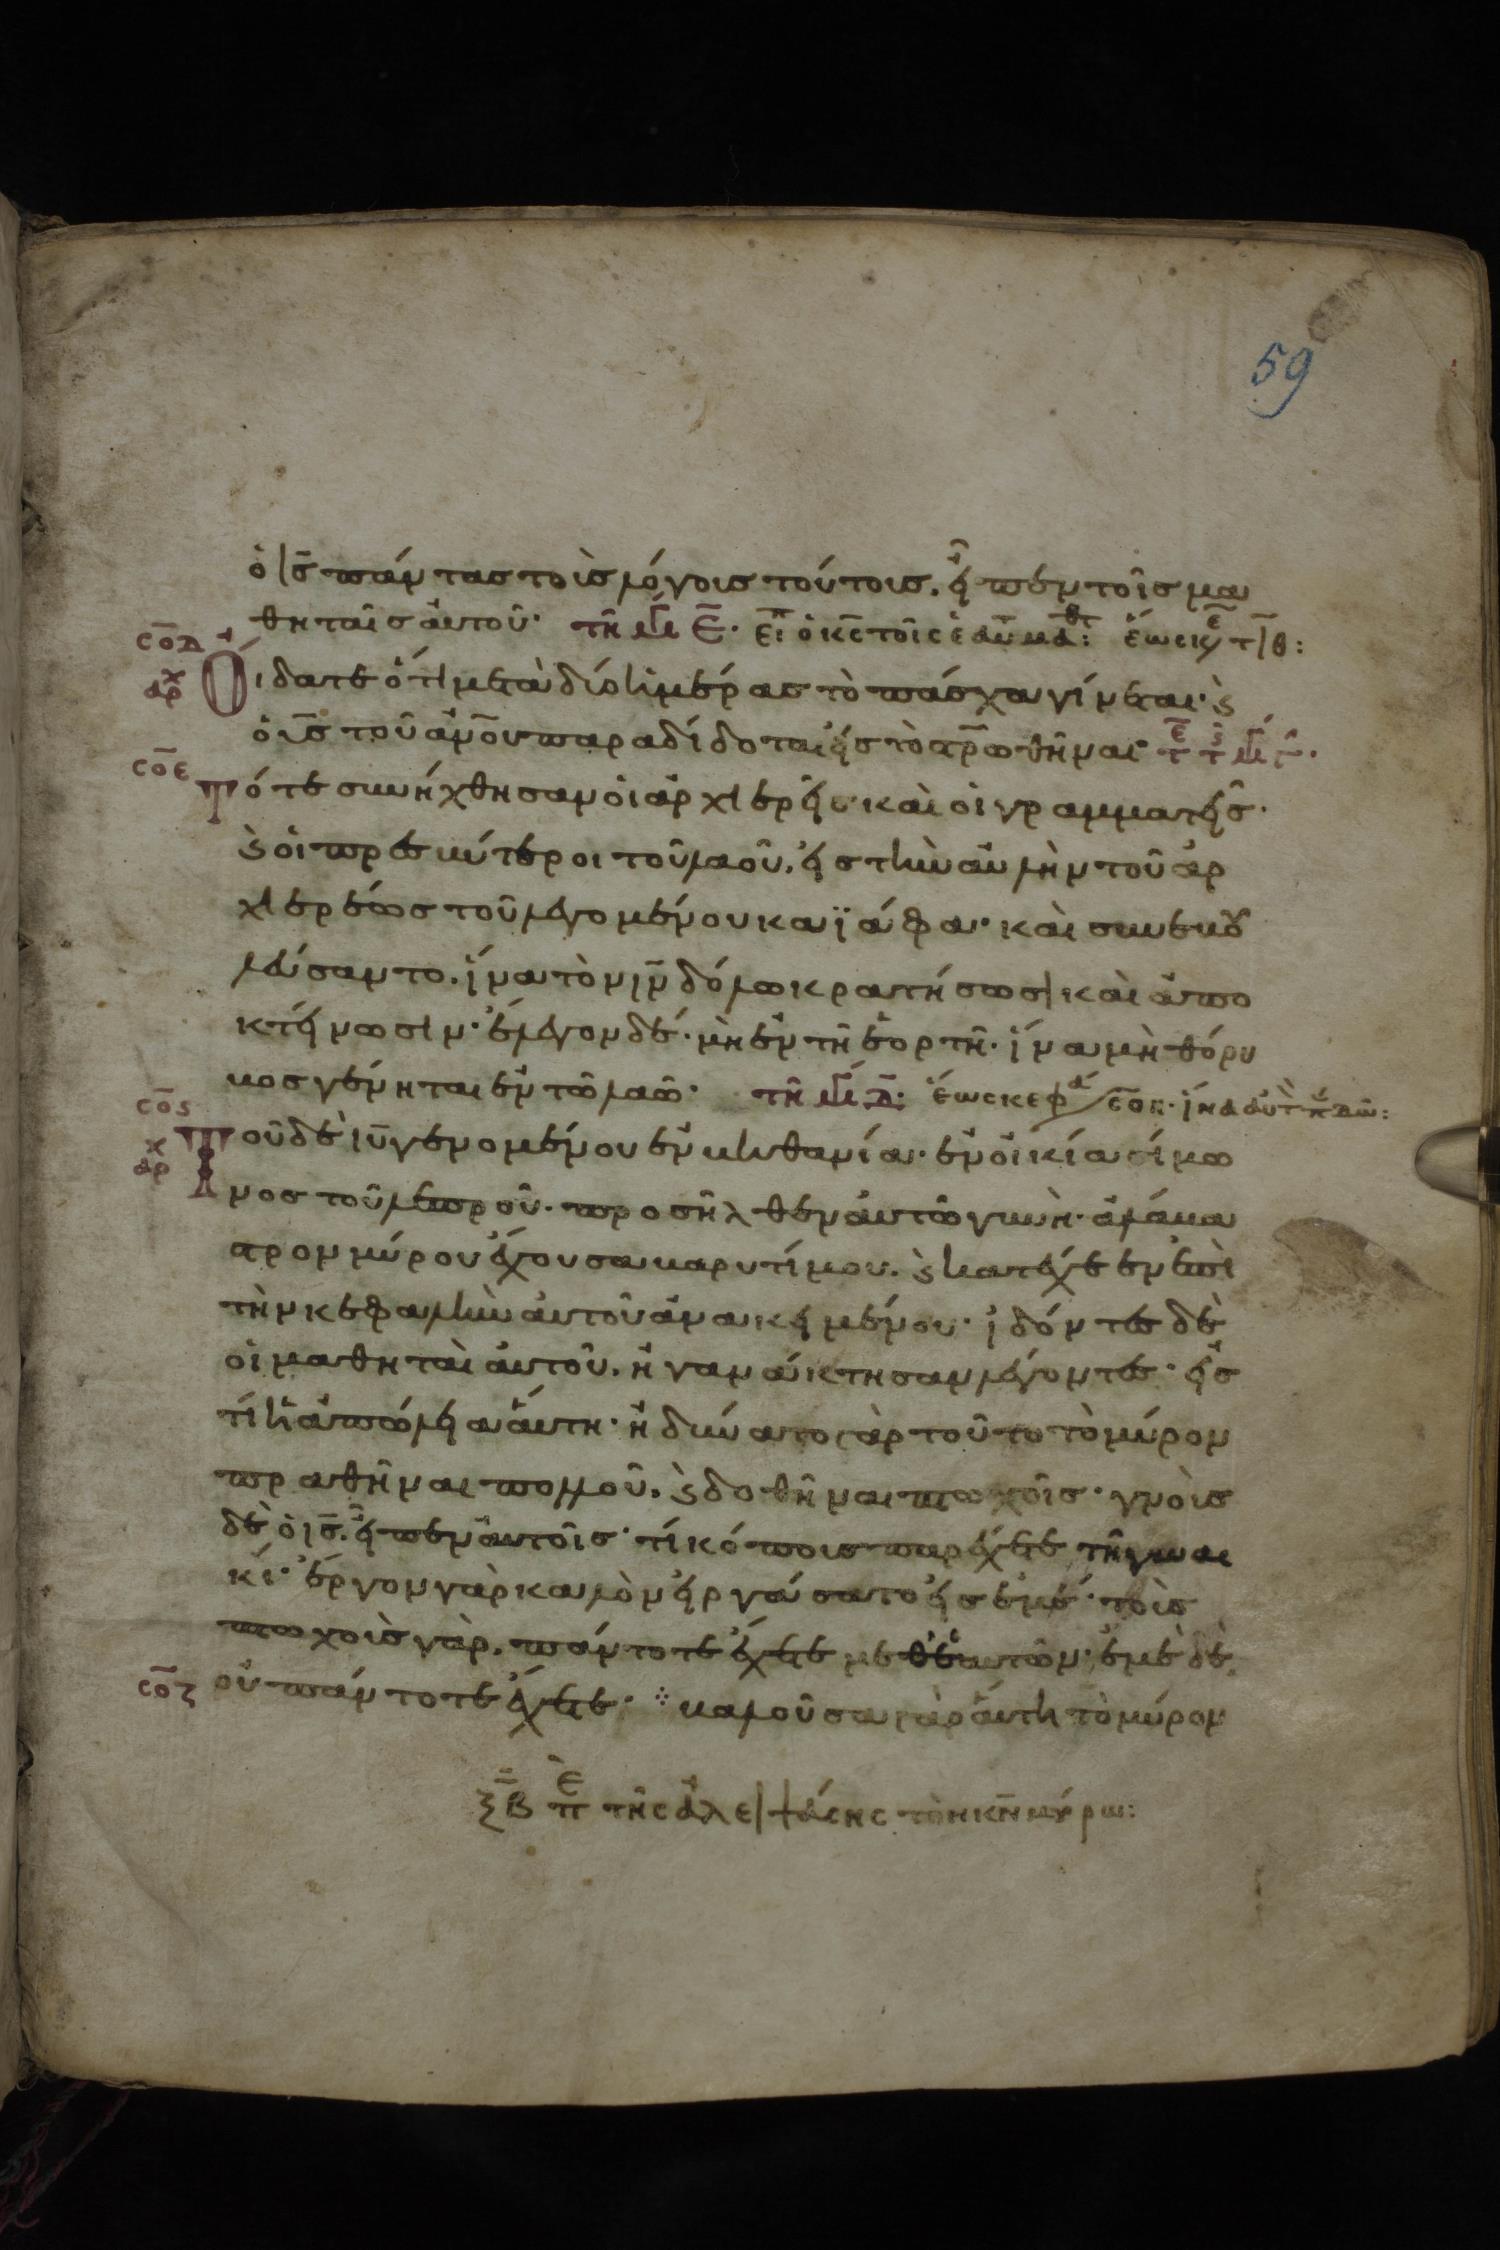 59
ὁ ις̅ πάντας τοὺς λόγους τούτους. εἶπεν τοῖς μα
θηταῖς αὐτοῦ· τῆ μγ̅ ε̅·
σ̅ο̅δ
αρχ Οἴδατε ὅτι μετὰ δύο ἡμέρας τὸ πάσχα γίνεται· ϗ
ὁ υς̅ τοῦ ἀν̅ου παραδίδοται εἰς τὸ στρ̅ωθῆναι·
σ̅ο̅ε
Τότε συνήχθησαν οἱ ἀρχιερεῖς καὶ οἱ γραμματεῖς·
ϗ οἱ πρεσβύτεροι τοῦ λαοῦ. εἰς τὴν αὐλὴν τοῦ ἀρ
χιερέως τοῦ λεγομένου καϊάφα· καὶ συνεβου
λεύσαντο. ἵνα τὸν ιν̅ δόλω κρατήσωσι καὶ ἀπο
κτείνωσιν· ἔλεγον δέ· μὴ ἐν τῆ ἑορτῆ· ἵνα μὴ θόρυ
βος γένηται ἐν τῶ λαῶ·
σ̅ο̅ς
αρχ Τοῦ δὲ ιυ̅ γενομένου ἐν βηθανία· ἐν οἰκία σίμω
νος τοῦ λεπροῦ· προσῆλθεν αὐτῶ γυνὴ· ἀλάβα
στρον μύρου ἔχουσα βαρυτίμου. ϗ κατέχεεν ἐπὶ
τὴν κεφαλὴν αὐτοῦ ἀνακειμένου· ἰδόντες δὲ
οἱ μαθηταὶ αὐτοῦ. ἠγανάκτησαν λέγοντες· εἰς
τί ἡ ἀπώλεια αὕτη· ἠδύνατο γὰρ τοῦτο τὸ μύρον
πραθῆναι πολλοῦ. ϗ δοθῆναι πτωχοῖς· γνοὺς
δὲ ὁ ις̅. εἶπεν αὐτοῖς· τί κόπους παρέχετε τῆ γυναι
κί· ἔργον γὰρ καλὸν εἰργάσατο εἰς ἐμέ· τοὺς
πτωχοὺς γὰρ. πάντοτε ἔχετε μεθ' ἑαυτῶν· ἐμὲ δὲ
σ̅ο̅ζ οὐ πάντοτε ἔχετε· ⁘ βαλοῦσα γὰρ αὕτη τὸ μύρον
ξβ̅ πε τῆς ἀλειψάσης τὸν κν̅ μύρω: